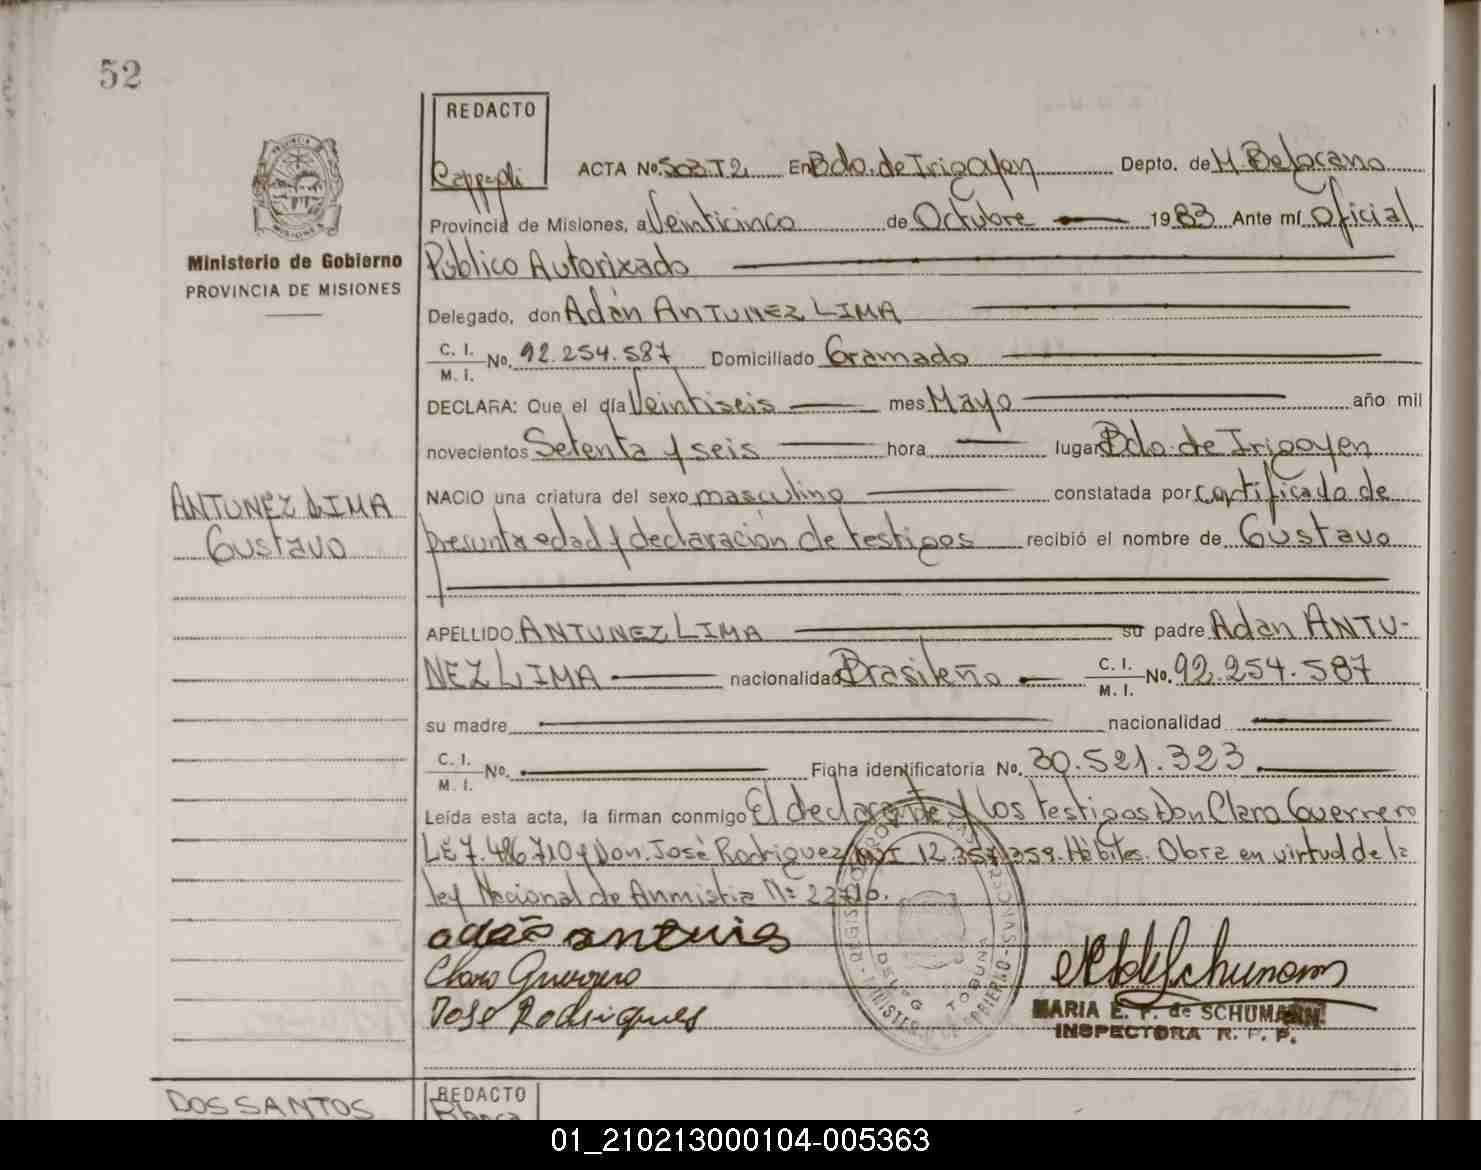 52
REDACTO
ACTA No. 503.T2 En Bdo. de Irigoyen Depto. de M. Belgrano
Provincia de Misiones, a Veinticinco de Octubre 1983 Ante mí Oficial
Público Autorizado
Ministerio de Gobierno
PROVINCIA DE MISIONES
Delegado, don Adán ANTUNEZ LIMA
C. I.
M. I. No. 92.254.587 Domiciliado Gramado
DECLARA: Que el día Veintiseis mes Mayo año mil
novecientos Setenta y seis hora lugar Bdo. de Irigoyen
ANTUNEZ LIMA
Gustavo
NACIO una criatura del sexo masculino constatada por certificado de
presunta edad y declaración de testigos recibió el nombre de Gustavo
APELLIDO ANTUNEZ LIMA su padre Adan ANTU-
NEZ LIMA nacionalidad Brasileño C. I.
M. I. No. 92.254.587
su madre nacionalidad
C. I.
M. I. No. Ficha identificatoria No. 30.521.323
Leída esta acta, la firman conmigo El declarante y los testigos Don Claro Guerrero
LE 7.486.710 y Don José Rodriguez 12. .359. Hábiles. Obra en virtud de la
ley Nacional de Anmistia Nº
adão antunis
Claro Guerrero
José Rodrigues
MARIA E. P. de SCHUMANN
INSPECTORA R. P. P.
DOS SANTOS
REDACTO
01_210213000104-005363